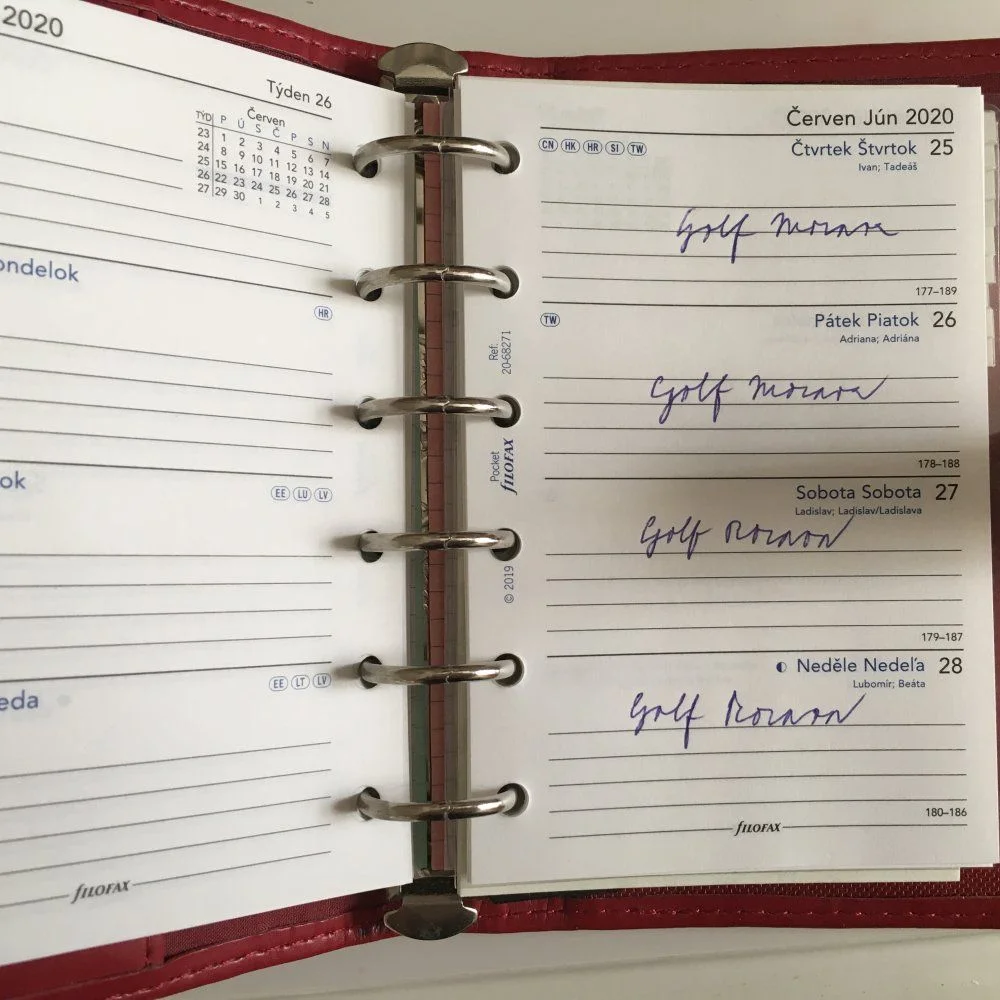 2020
Týden 26
Červen
TÝD P Ú S Č P S N
23 1 2 3 4 5 6 7
24 8 9 10 11 12 13 14
25 15 16 17 18 19 20 21
26 22 23 24 25 26 27 28
27 29 30 1 2 3 4 5
ondelok
HR
ok
EE LU LV
eda
EE LT LV
fILOFAX
Ref.
20-68271
Pocket
fILOFAX
© 2019
Červen Jún 2020
CN HK HR SI TW
Čtvrtek Štvrtok 25
Ivan; Tadeáš
Golf Morava
177–189
TW
Pátek Piatok 26
Adriana; Adriána
Golf Morava
178–188
Sobota Sobota 27
Ladislav; Ladislav/Ladislava
Golf
179–187
Neděle Nedeľa 28
Lubomír; Beáta
Golf
180–186
fILOFAX